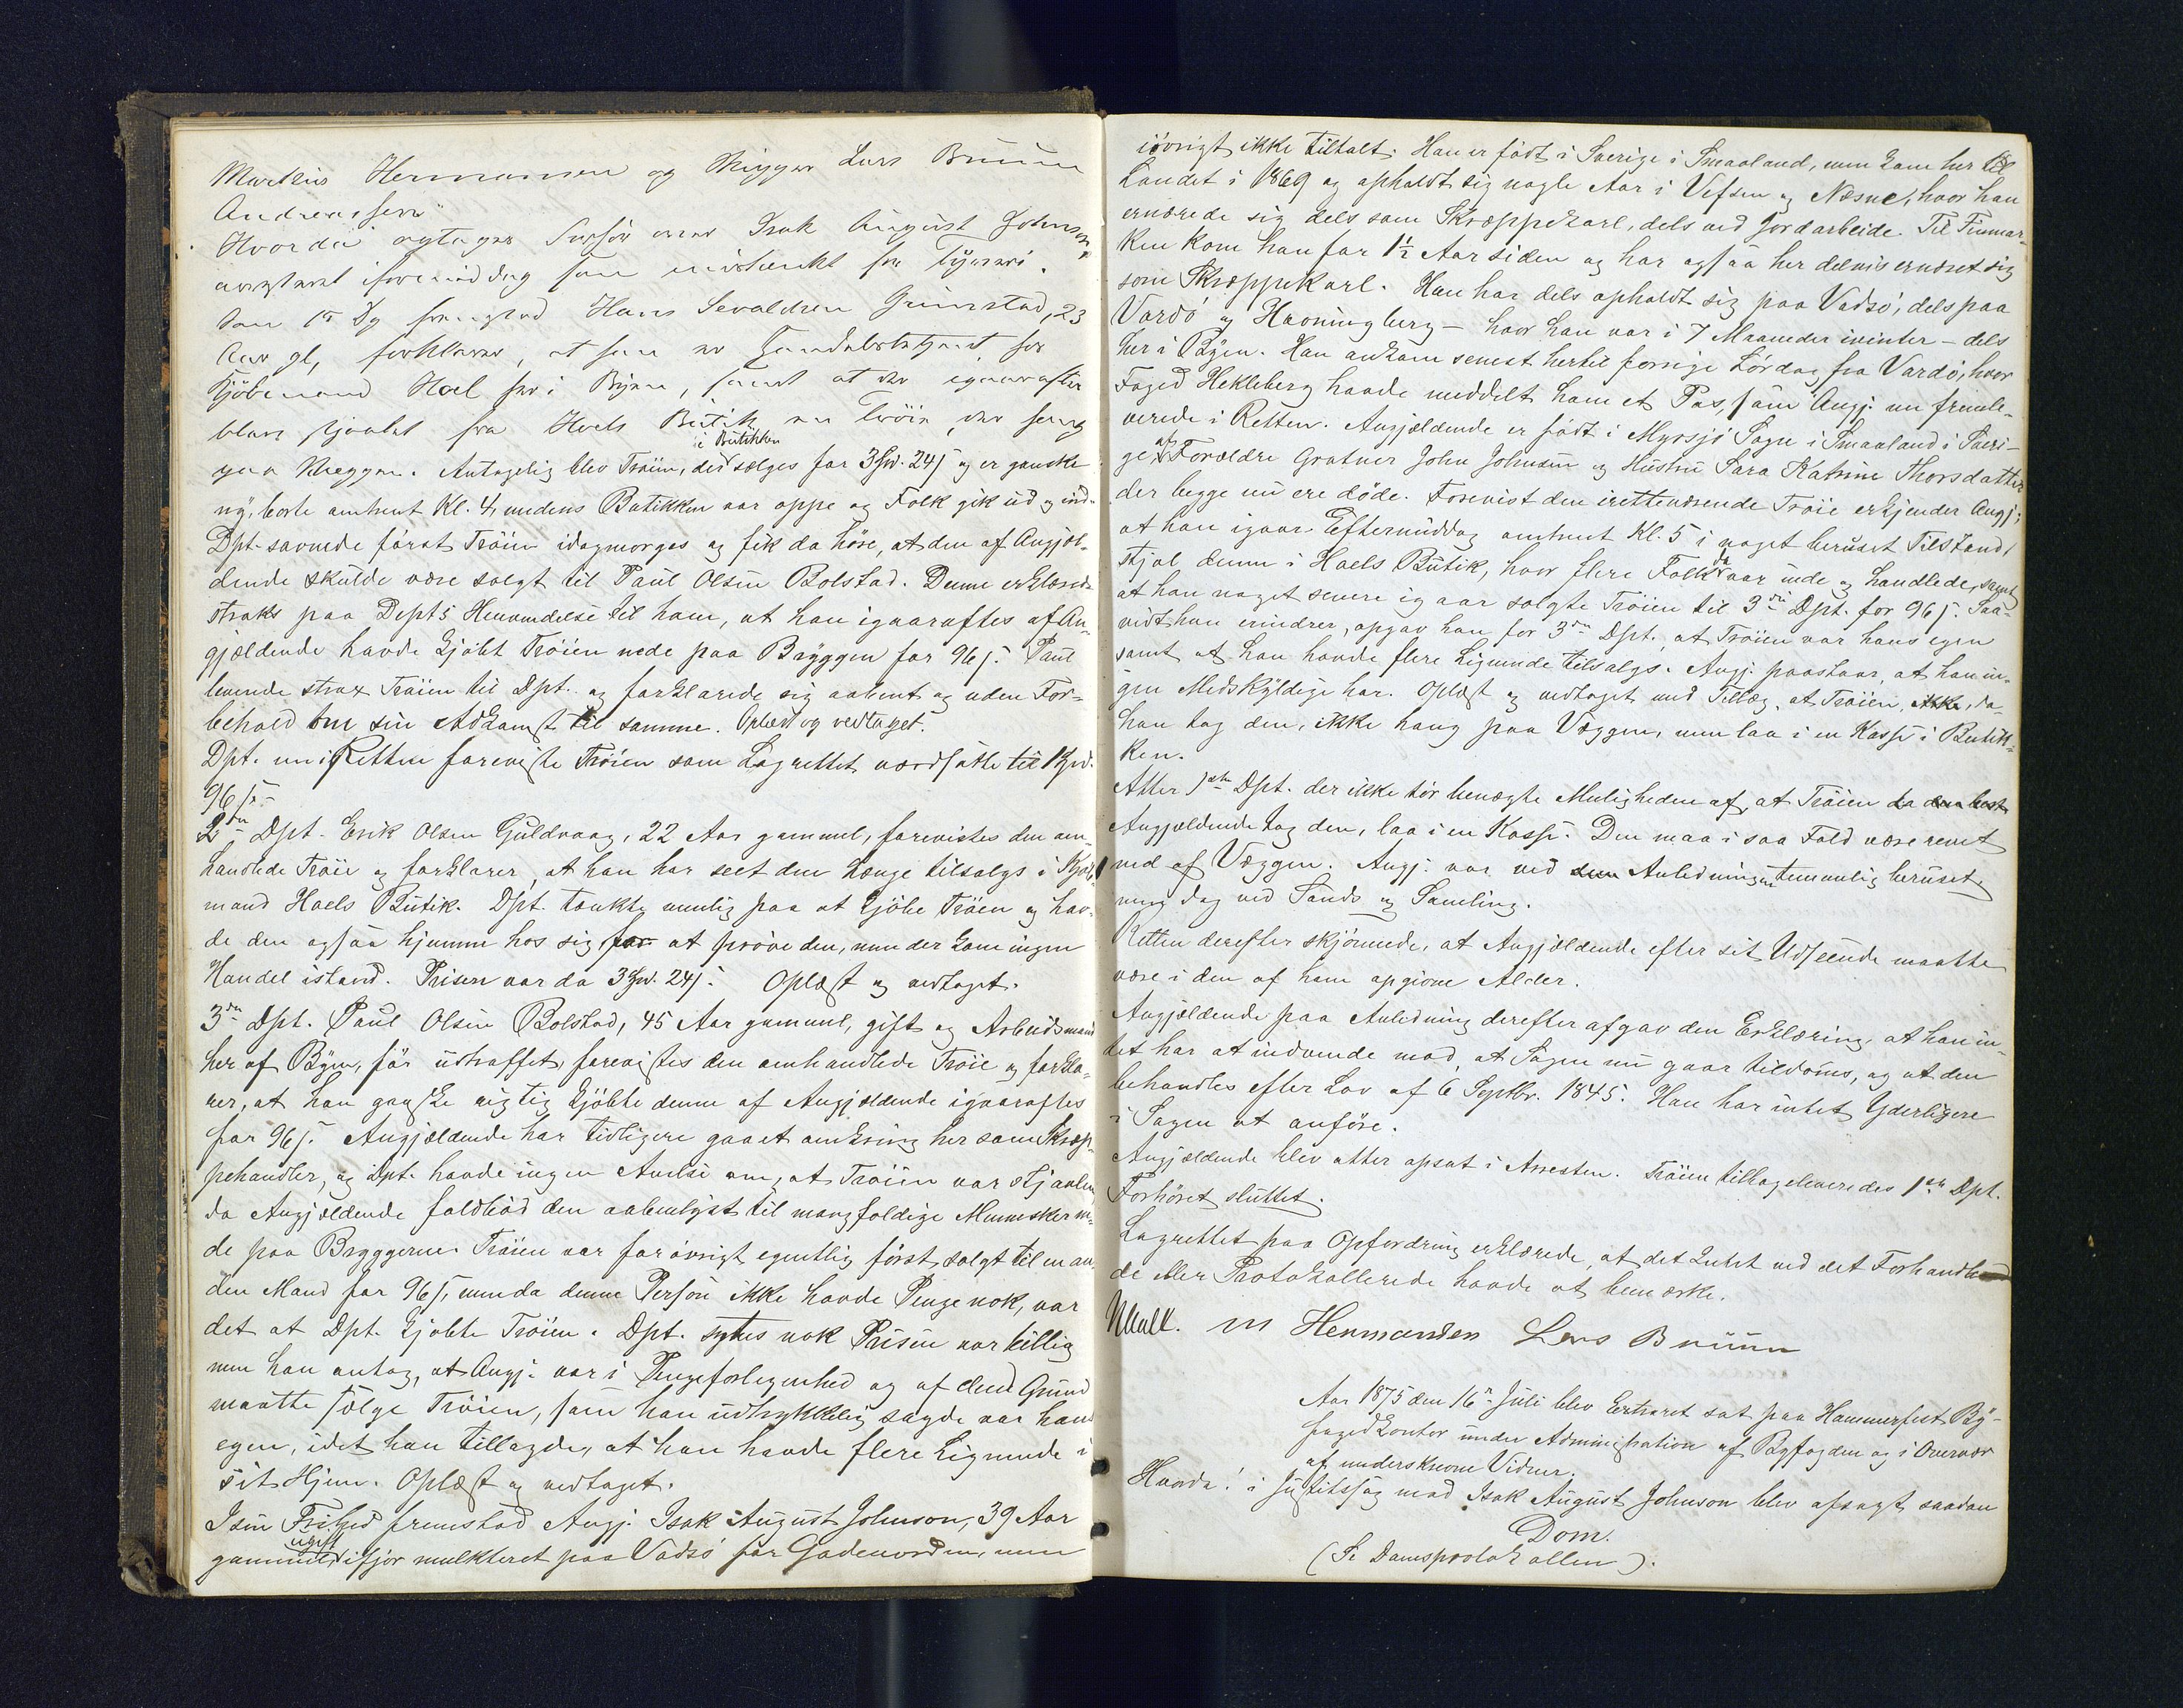 Markus Hermansen og Skipper Lars Bruun
Andreassen
Hvorda optoges Forhör over Isak August Johnson
arresteret iformiddag som mistænkt for Tyveri.
Som 1ste Dp fremstod Hans Sevaldsen Grimstad, 23
Aar gl, forklarer, at han er Handelsbetjent hos
Kjöbmand Hoel her i Byen, samt at der igaaraftes
blev stjaalet fra Hoels Butik en Tröie, der hang
i Butikken
paa Væggen. Antagelig blev Tröien, der sælges for 3 Spd. 24 s og er ganske
ny, borte omtrent Kl. 4, medens Butikken var oppe og Folk gik ud og ind.
Dpt. savnede först Tröien idagmorges og fik da höre, at den af Angjæl-
dende skulde være solgt til Paul Olsen Bolstad. Denne erklærede
straks paa Depts Henvendelse til ham, at han igaaraftes af An-
gjældende havde kjöbt Tröien nede paa Bryggen for 96 s. Paul
leverede strax Tröien til Dpt. og forklarede sig aabent og uden For-
behold om sin Adkomst til samme. Oplæst og vedtaget.
Dpt. nu i Retten foreviste Tröien som Lagrettet værdsatte til 1 Spd.
96 s.
2den Dpt. Erik Olsen Guldvaag, 22 Aar gammel, forevistes den om-
handlede Tröie og forklarer, at han har seet den hænge tilsalgs i Kjöb-
mand Hoels Butik. Dpt. tænkte nemlig paa at kjöbe Tröien og hav-
de den ogsaa hjemme hos sig for at pröve den, men der kom ingen
Handel istand. Prisen var da 3 Spd. 24 s. Oplæst og vedtaget.
3die Dpt. Paul Olsen Bolstad, 45 Aar gammel, gift og Arbeidsmand
her af Byen, för ustraffet, forevistes den omhandlede Tröie og forkla-
rer, at han ganske rigtig kjöbte denne af Angjældende igaaraftes
for 96 s. Angjældende har tidligere gaaet omkring her som Skræp-
pehandler, og Dpt. havde ingen Anelse om, at Tröien var stjaalen
da Angjældende falböd den aabenlyst til mangfoldige Mennesker ne-
de paa Bryggerne. Tröien var forövrigt egentlig först solgt til en an-
den Mand for 96 s, men da denne Person ikke havde Penge nok, var
det at Dpt. kjöbte Tröien. Dpt. syntes nok Prisen var billig
men han antog, at Angj. var i Pengeforlegenhed og af den Grund
maatte sælge Tröien, som han udtrykkelig sagde var hans
egen, idet han tillagde, at han havde flere Lignende i
sit Hjem. Oplæst og vedtaget.
I sin Frihed fremstod Angj. Isak August Johnson, 39 Aar
ugift
gammel, ifjor mulkteret paa Vadsö for Gadeuorden, men
iövrigt ikke tiltalt. Han er födt i Sverige i Smaaland, men kom her til
Landet i 1869 og opholdt sig nogle Aar i Vefsen og Næsne, hvor han
ernærede sig dels som Skræppekarl, dels ved Jordarbeide. Til Finmar-
ken kom han for 1½ Aar siden og har ogsaa her delvis ernæret sig
som Skræppekarl. Han har dels opholdt sig paa Vadsö, dels paa
Vardö og Havningberg – hvor han var i 7 Maaneder ivinter – dels
her i Byen. Han ankom senest hertil forrige Lördag fra Vardö, hvor
Foged Hekleberg havde meddelt ham et Pas, som Angj. nu fremle-
verede i Retten. Angjældende er födt i Myrsjö Sogn i Smaaland i Sveri-
ge af Forældre Gratner John Johnson og Hustru Sara Katrine Thorsdatter
der begge nu ere döde. Forevist den iretteværende Tröie erkjender Angj.,
at han igaar Eftermiddag omtrent Kl. 5 i noget beruset Tilstand,
stjal denne i Hoels Butik, hvor flere Folk da var inde og handlede, samt
at han noget senere igaar solgte Tröien til 3die Dpt. for 96 s. Saa-
vidt han erindrer, opgav han for 3die Dpt. at Tröien var hans egen
samt at han havde flere Lignende tilsalgs. Angj. paastaar, at han in-
gen Medskyldige har. Oplæst og vedtaget med Tillæg, at Tröien, ikke, da
han tog den, ikke hang paa Væggen, men laa i en Kasse i Butik-
ken.
Atter 1ste Dpt. der ikke tör benægte Muligheden af, at Tröien da den blev
Angjældende tog den, laa i en Kasse. Den maa i saa Fald være revet
ned af Væggen. Angj. var ved den Anledningen temmelig beruset,
men dog ved Sands og Samling.
Retten derefter skjönnede, at Angjældende efter sit Udseende maatte
være i den af ham opgivne Alder.
Angjældende paa Anledning derefter afgav den Erklæring, at han in-
tet har at indvende mod, at Sagen nu gaar tildoms, og at den
behandles efter Lov af 6 Septbr. 1845. Han har intet Yderligere
i Sagen at anföre.
Angjældende blev atter opsat i Arresten. Tröien tilbageleveredes 1ste Dpt.
Forhöret sluttet.
Lagrettet paa Opfordring erklærede, at det Intet ved det Forhandle-
de eller Protokollerede havde at bemærke.
M Hermansen Lars Bruun
Aar 1875 den 16de Juli blev Extraret sat paa Hammerfest By-
fogedkontor under Administration af Byfogden og i Overvær
af underskrevne Vidner.
Hvorda: i Justitssag mod Isak August Johnson blev afsagt saadan
Dom.
(Se Domsprotokollen).